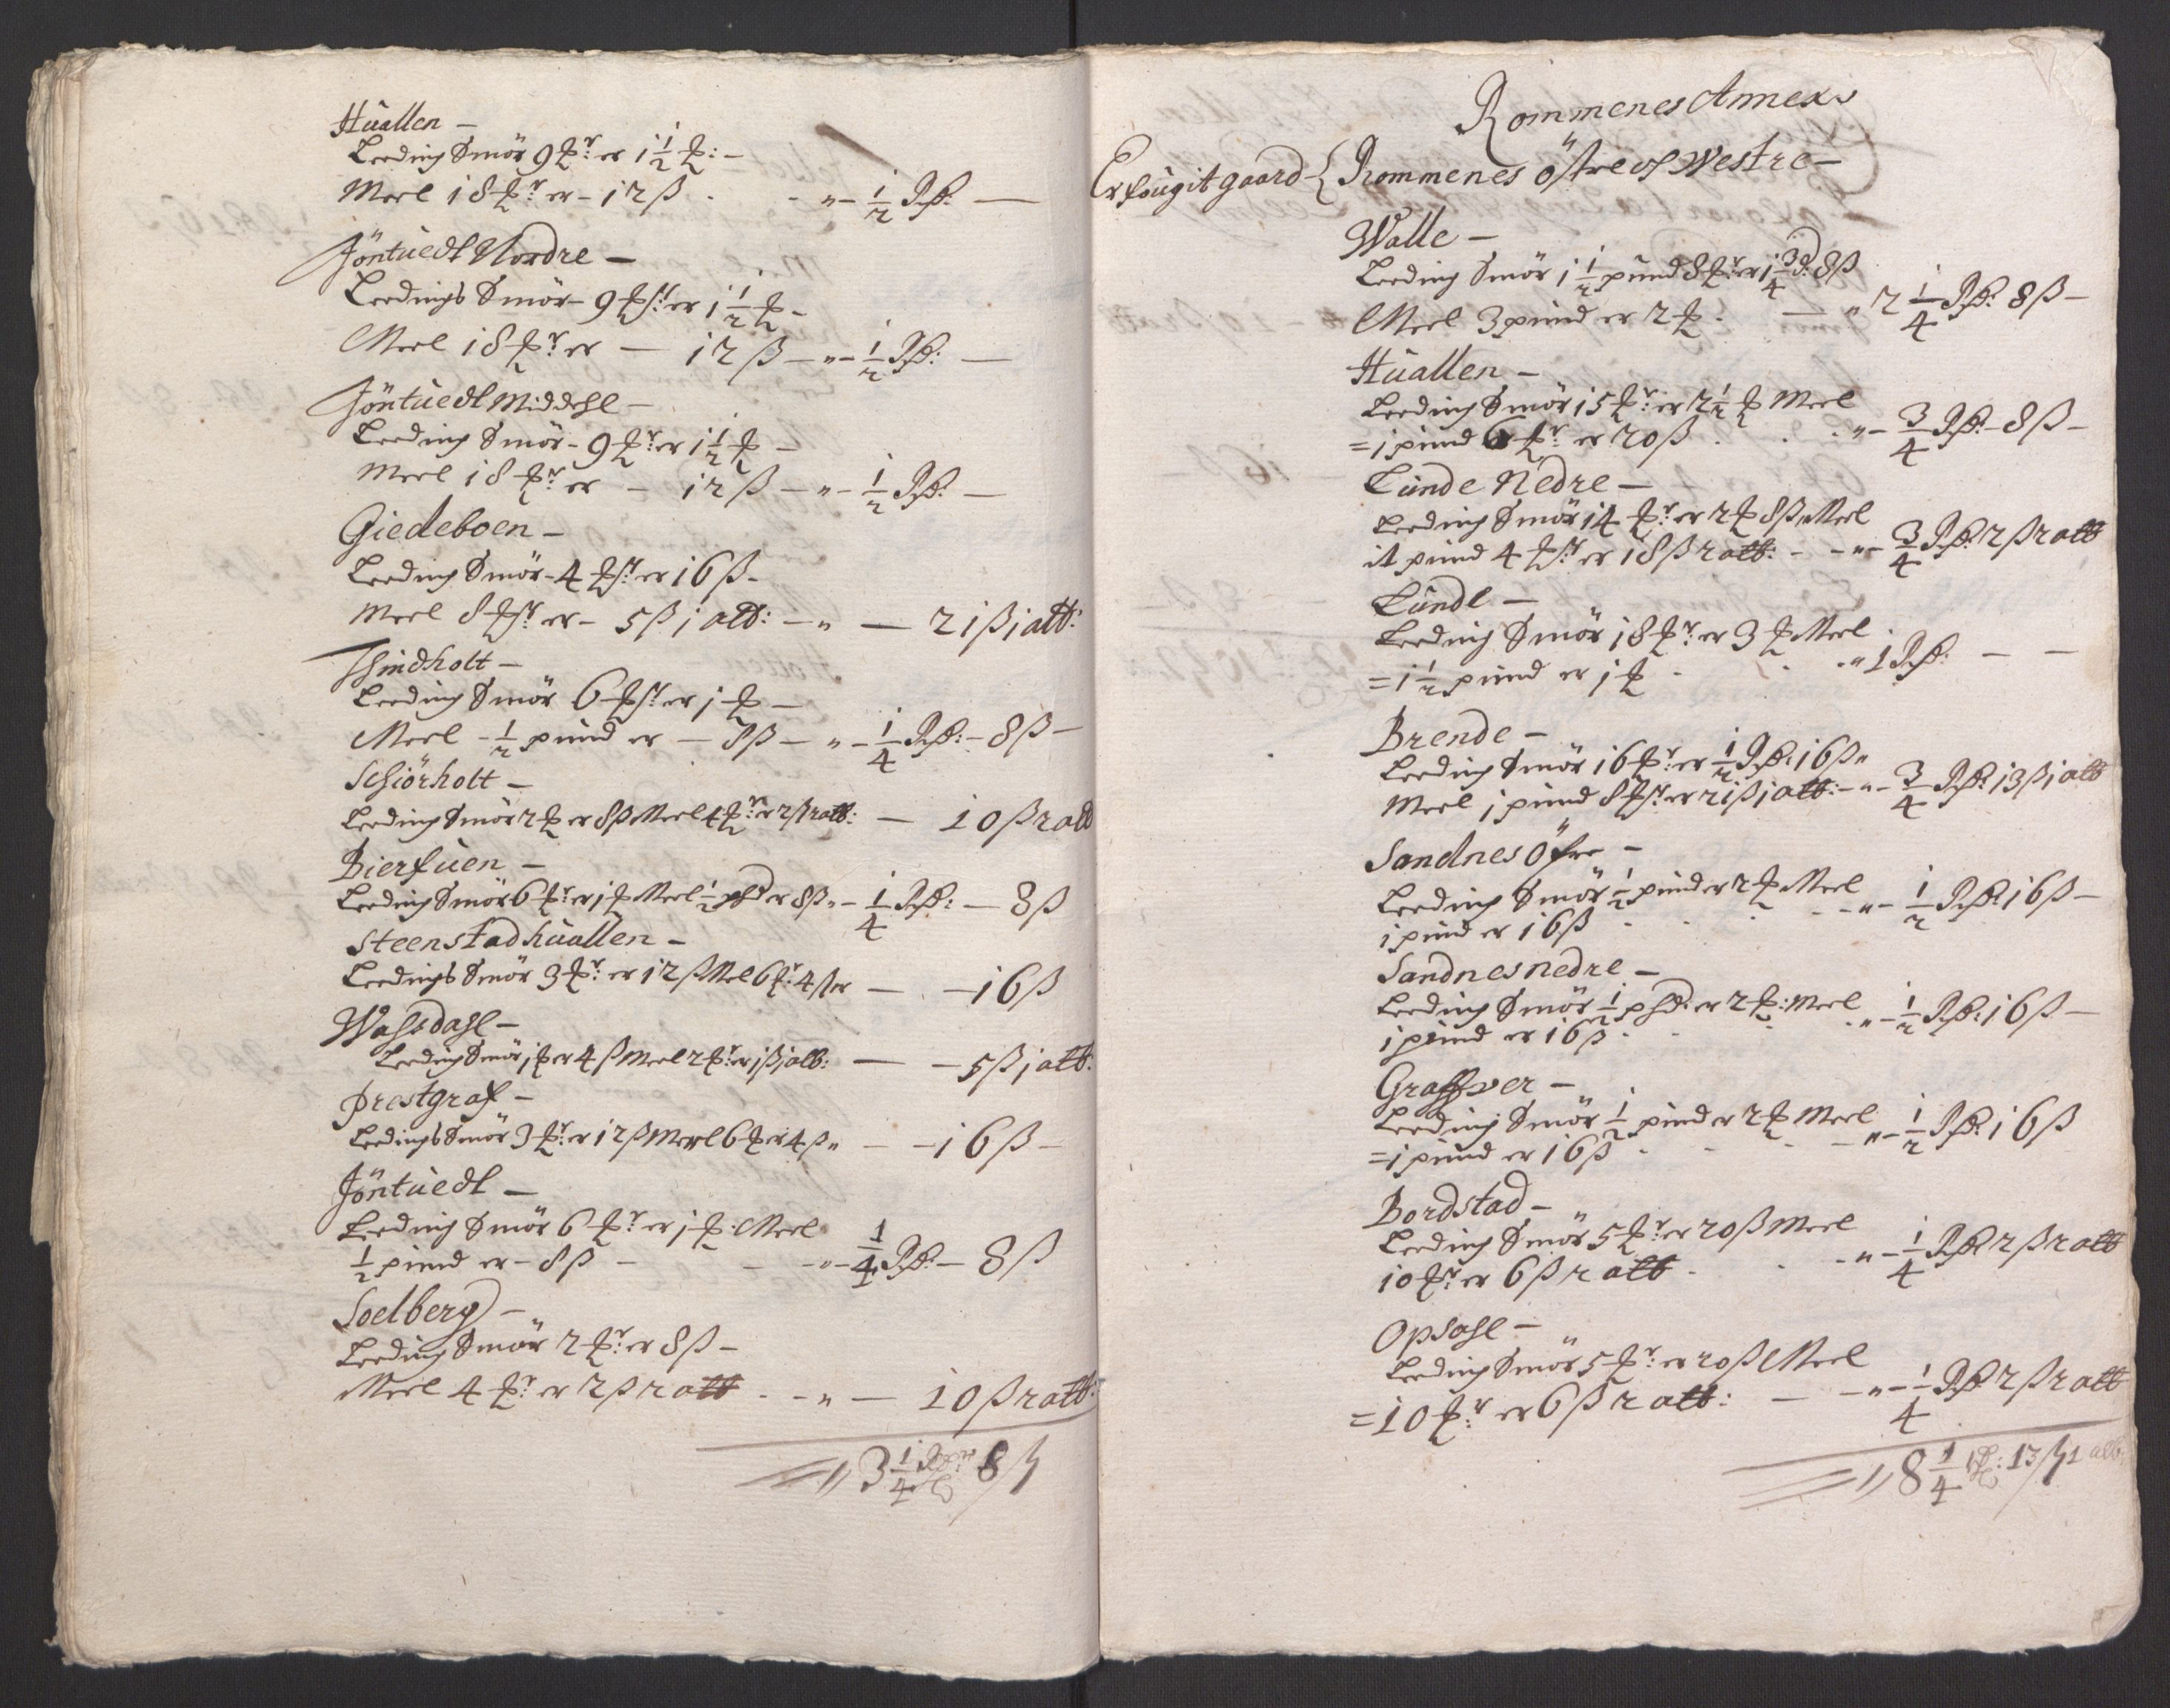 Huallen –
Leeding Smör 9 ℔r: er 1 1/2 ℔: –
Meel 18 ℔r: er – 12 ß - - „ – 1/2 Rd: —
Jöntuedt Nordre –
Leedings Smör – 9 ℔r: er 1 1/2 ℔ –
Meel 18 ℔r: er — 12 ß – „ – 1/2 Rd: —
Jöntuedt Middehl –
Leeding Smör – 9 ℔r: er 1 1/2 ℔ –
Meel 18 ℔r: er – 12 ß – „ – 1/2 Rd: —
Giedeboen –
Leeding Smör – 4 ℔r: er 16 ß –
Meel 8 ℔r: er – 5 ß 1 alb: – „ — 21 ß 1 alb:
Thindholt –
Leeding Smör 6 ℔r: er 1 ℔ –
Meel – 1/2 pund er – 8 ß – „ – 1/4 Rd: – 8 ß –
Schiörholt –
Leeding Smör 2 ℔ er 8 ß Meel 4 ℔r: er 2 ß 2 alb: — 10 ß 2 alb
Bierfuen –
Leeding Smör 6 ℔r: er 1 ℔ Meel 1/2 pd er 8 ß „ – 1/4 Rd: – 8 ß
Steenstadhuallen –
Leedings Smör 3 ℔r: er 12 ß Mel 6 ℔r: 4 ß er — – 16 ß
Wahsdahl –
Leeding Smör 1 ℔ er 4 ß Meel 2 ℔r: er 1 ß 1 alb: — – 5 ß 1 alb:
Prestgraf –
Leedings Smör 3 ℔r: er 12 ß Meel 6 ℔ er 4 ß „ – – 16 ß –
Jöntuedt –
Leeding Smör 6 ℔r: er 1 ℔: Meel
1/2 pund er – 8 ß – - – „ – 1/4 Rd: – 8 ß
Soelberg –
Leeding Smör 2 ℔r: er 8 ß –
Meel 4 ℔r: er 2 ß 2 alb - - „ — 10 ß 2 alb:
3 1/4 Rdr 8 ß
Rommenes Annex
Erfougit gaard { Rommenes östre og Westre –
Walle –
Leeding Smör 1 1/2 pund 8 ℔r: er 1 3/4 d: 8 ß
Meel 3 pund er 2 ℔ - — „ 2 1/4 Rd: 8 ß –
Huallen –
Leeding Smör 15 ℔r: er 2 1/2 ℔ Meel
= 1 pund 6 ℔r: er 20 ß - - - „ – 3/4 Rd: – 8 ß –
Lunde Nedre –
Leeding Smör 14 ℔r: er 2 ℔ 8 ß „ Meel
it pund 4 ℔r: er 18 ß 2 alb: – – „ – 3/4 Rd: 2 ß 2 alb
Lunde –
Leeding Smör 18 ℔r: er 3 ℔ Meel
= 1 1/2 pund er 1 ℔ - - - „ 1 Rd: – –
Brende –
Leeding Smör 16 ℔r: er 1/2 Rd: 16 ß „
Meel 1 pund 8 ℔r: er 21 ß 1 alb: – „ – 3/4 Rd: 13 ß 1 alb
Sandnes Öfre –
Leeding Smör 1/2 pund er 2 ℔ Meel
1 pund er 16 ß - - - – „ – 1/2 Rd: 16 ß –
Sandnes nedre –
Leeding Smör 1/2 pd: er 2 ℔: Meel
1 pund er 16 ß - - - „ – 1/2 Rd: 16 ß –
Graffver –
Leeding Smör 1/2 pund er 2 ℔ Meel
= 1 pund er 16 ß - - - – „ – 1/2 Rd: 16 ß
Bordstad –
Leeding Smör 5 ℔r: er 20 ß Meel
10 ℔r: er 6 ß 2 alb - - – „ – 1/4 Rd: 2 ß 2 alb
Opsahl –
Leding Smör 5 ℔r: er 20 ß Meel
= 10 ℔r: er 6 ß 2 alb: – – „ – 1/4 Rd: 2 ß 2 alb
8 1/4 Rd: 13 ß 1 alb